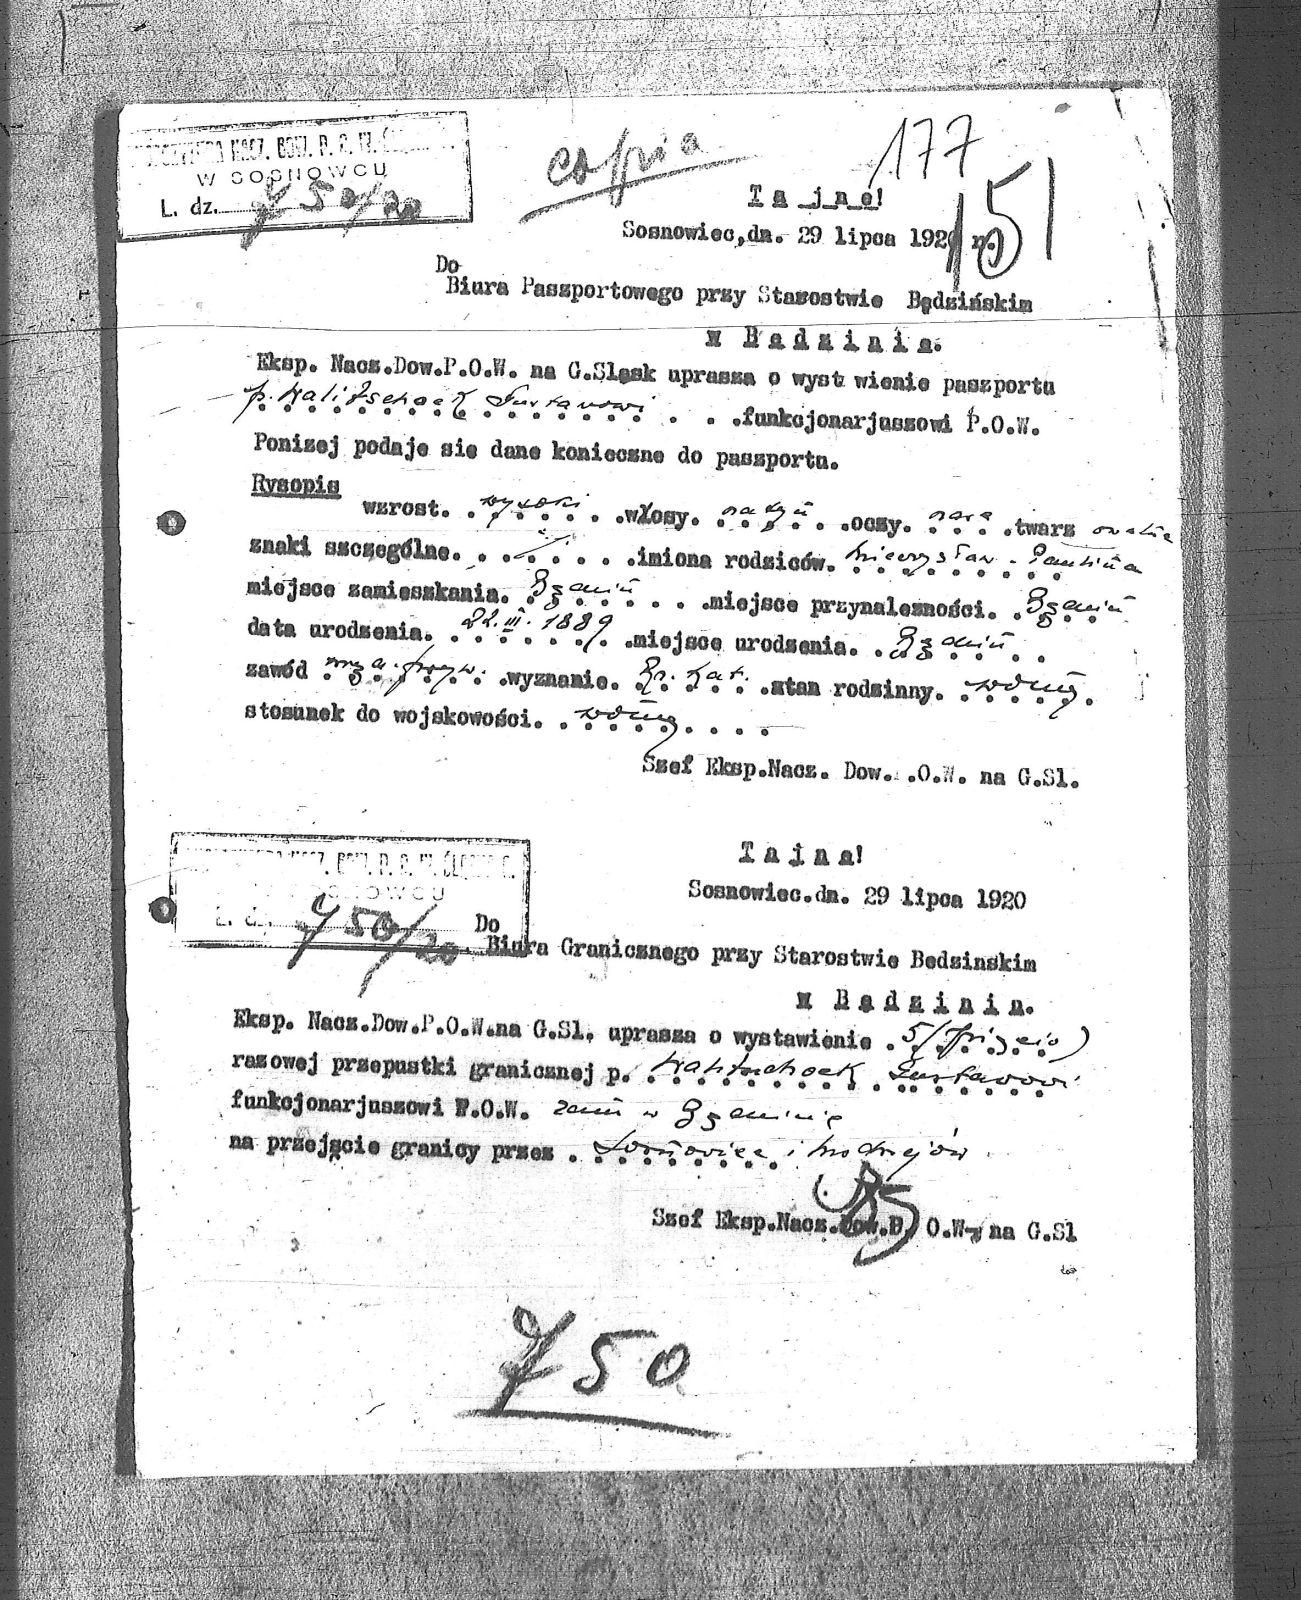 NACZ. DOW. P. O. W.
W SOSNOWCU
L. dz. 750/20
copia
177
151
Tajne!
Sosnowiec,dn. 29 lipca 1920 r.
Do
Biura Paszportowego przy Starostwie Będzińskim
w Będzinie.
Eksp. Nacz.Dow.P.O.W. na G.Sląsk uprasza o wyst wienie paszportu
p. Kalitschock Gustawowi . . .funkcjonarjuszowi P.O.W.
Ponizej podaje sie dane konieczne do paszportu.
Rysopis
wzrost. wysoki .włosy. .oczy. .twarz owalna
znaki szczególne. . . ./. . . .imiona rodziców. Mieczysław . Paulina
miejsce zamieszkania. Będzin . . .miejsce przynalezności. Będzin
data urodzenia. 22.III.1889 .miejsce urodzenia. Będzin . .
zawód .wyznanie. Rz. Kat. .stan rodzinny. wolny.
stosunek do wojskowości. wolny . . . .
Szef Eksp.Nacz. Dow. .O.W. na G.Sl.
NACZ. DOW. P. O. W.
SOSNOWCU
L. dz. 750/20
Tajna!
Sosnowiec.dn. 29 lipca 1920
Do
Biura Granicznego przy Starostwie Bedzinskim
w Będzinin.
Eksp. Nacz.Dow.P.O.W.na G.Sl. uprasza o wystawienie . 5/(pięcio)
razowej przepustki granicznej p. Kalitschock Gustawowi
funkcjonarjuszowi P.O.W. zam w Będzinie
na przejście granicy przez . Sosnowiec i Modrzejów
Szef Eksp.Nacz.Dow.P. O.W. na G.Sl
750